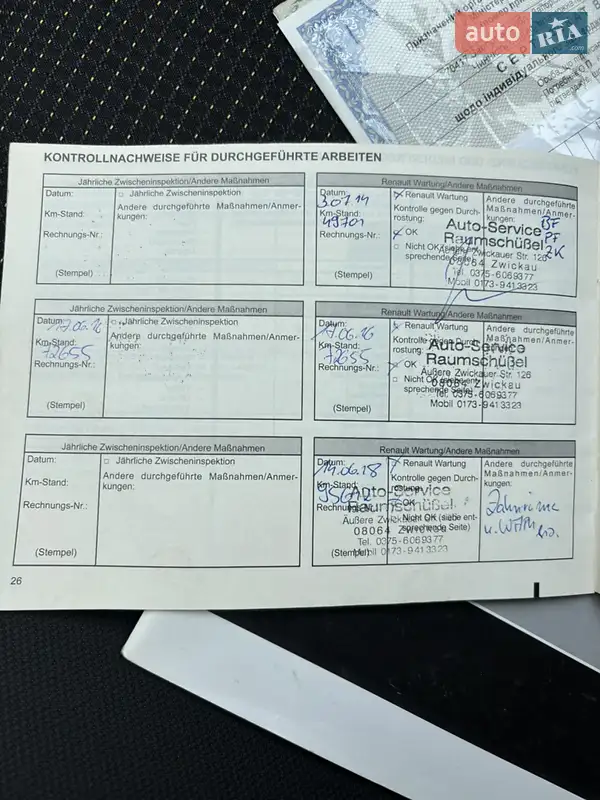 auto RIA.com
KONTROLLNACHWEISE FÜR DURCHGEFÜHRTE ARBEITEN
Jährliche Zwischeninspektion/Andere Maßnahmen
Datum:
□ Jährliche Zwischeninspektion
Km-Stand:
Andere durchgeführte Maßnahmen/Anmer-
kungen:
Rechnungs-Nr.:
(Stempel)
Renault Wartung/Andere Maßnahmen
Datum:
3.07.14
Km-Stand:
49701
Rechnungs-Nr.:
(Stempel)
Renault Wartung
Kontrolle gegen Durch-
rostung:
OK
Nicht OK
sprechende Seite)
Andere durchgeführte
Maßnahmen/Anmer-
kungen:
BF
PF
2K
Auto-Service
Raumschüßel
Äußere Zwickauer Str. 126
08064 Zwickau
Tel. 0375-6069377
Mobil 0173-9413323
Jährliche Zwischeninspektion/Andere Maßnahmen
Datum:
17.06.16
Km-Stand:
72655
Rechnungs-Nr.:
(Stempel)
□ Jährliche Zwischeninspektion
Andere durchgeführte Maßnahmen/Anmer-
kungen:
Renault Wartung/Andere Maßnahmen
Datum:
17.06.16
Km-Stand:
72655
Rechnungs-Nr.:
(Stempel)
Renault Wartung
Kontrolle gegen Durch-
rostung:
□ OK
□ Nicht OK
sprechende Seite)
Andere durchgeführte
Maßnahmen/Anmer-
kungen:
Auto-Service
Raumschüßel
Äußere Zwickauer Str. 126
08064 Zwickau
Tel. 0375-6069377
Mobil 0173-9413323
Jährliche Zwischeninspektion/Andere Maßnahmen
Datum:
□ Jährliche Zwischeninspektion
Km-Stand:
Andere durchgeführte Maßnahmen/Anmer-
kungen:
Rechnungs-Nr.:
(Stempel)
Renault Wartung/Andere Maßnahmen
Datum:
14.06.18
Km-Stand:
(Stempel)
Renault Wartung
Kontrolle gegen Durch-
OK
Nicht OK (siehe ent-
sprechende Seite)
Andere durchgeführte
Maßnahmen/Anmer-
kungen:
Auto-Service
Raumschüßel
08064 Zwickau
Tel. 0375-6069377
Mobil 0173-9413323
26